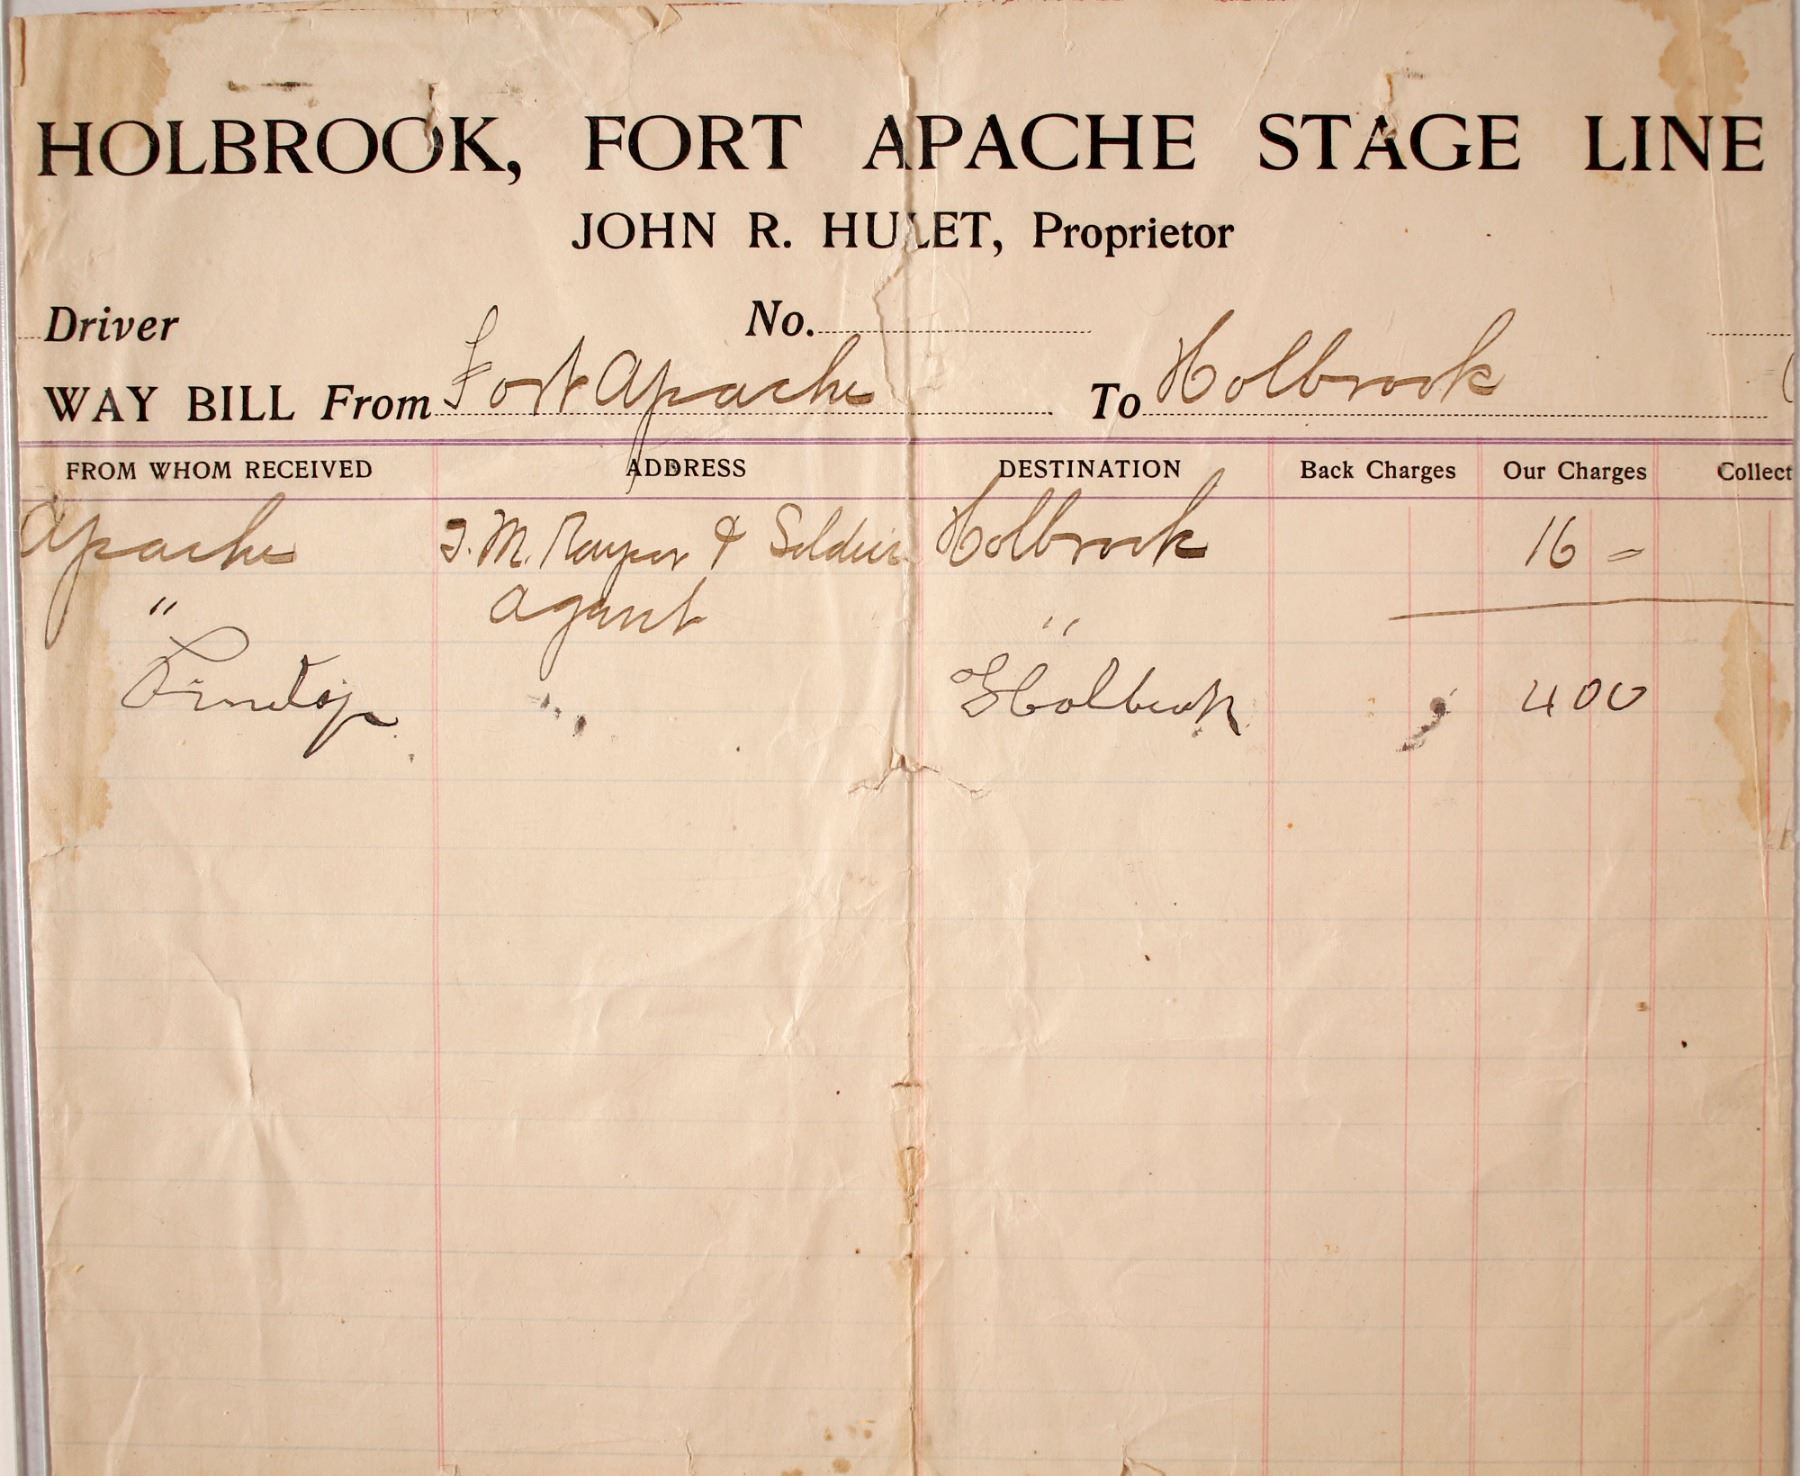 HOLBROOK, FORT APACHE STAGE LINE
JOHN R. HULET, Proprietor
Driver No.
WAY BILL From Fort Apache To Holbrook
FROM WHOM RECEIVED ADDRESS DESTINATION Back Charges Our Charges Collect
Apache J. M. & Soldier Holbrook 16 =
" Agent "
Pinetop " Holbrook 400